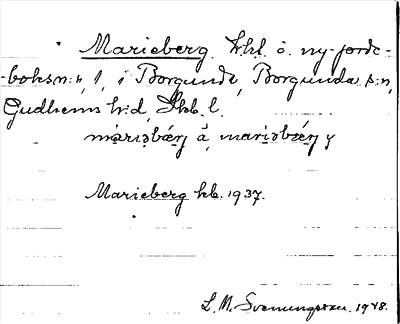 Marieberg. Lhl o. ny-jorde-
-boksn:r, 1, i Borgunda, Borgunda s:n,
Gudhems h:d, Skb. l.
màriəbæ̀rj å, mariəbærj y
Marieberg hb. 1937.
L. M. Svenungsson. 1948.